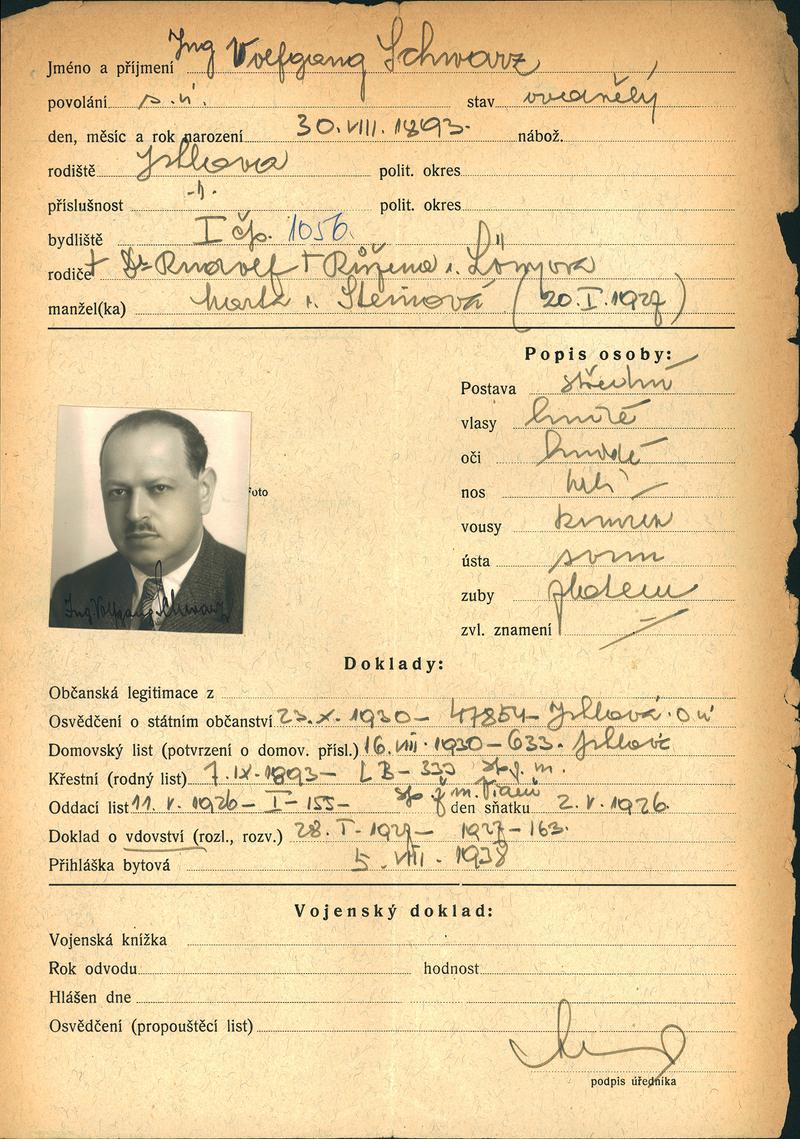 Jméno a příjmení Ing Volfgang Schwarz
povolání s.ú. stav ovdovělý
den, měsíc a rok narození 30.VIII.1893. nábož.
rodiště Jihlava polit. okres
příslušnost -"- polit. okres
bydliště I čp. 1056.
rodiče † Dr Rudolf † Růžena r.
manžel(ka) Marta r. Steinová (20.I.1927)
Popis osoby:
Postava střední
vlasy hnědé
oči hnědé
nos
vousy
ústa
zuby
zvl. znamení —
foto
Ing Volfgang Schwarz
Doklady:
Občanská legitimace z
Osvědčení o státním občanství 23.X.1930 – 47854 – Jihlava. O ú
Domovský list (potvrzení o domov. přísl.) 16.VIII.1930 – 633. Jihlava
Křestní (rodný list) 7.IX.1893 – LB – 333
Oddací list 11.V.1926 – I – 155 – den sňatku 2.V.1926.
Doklad o vdovství (rozl., rozv.) 28.I.1927 – 1927 – 163.
Přihláška bytová 5.VIII.1938
Vojenský doklad:
Vojenská knížka
Rok odvodu hodnost
Hlášen dne
Osvědčení (propouštěcí list)
podpis úředníka